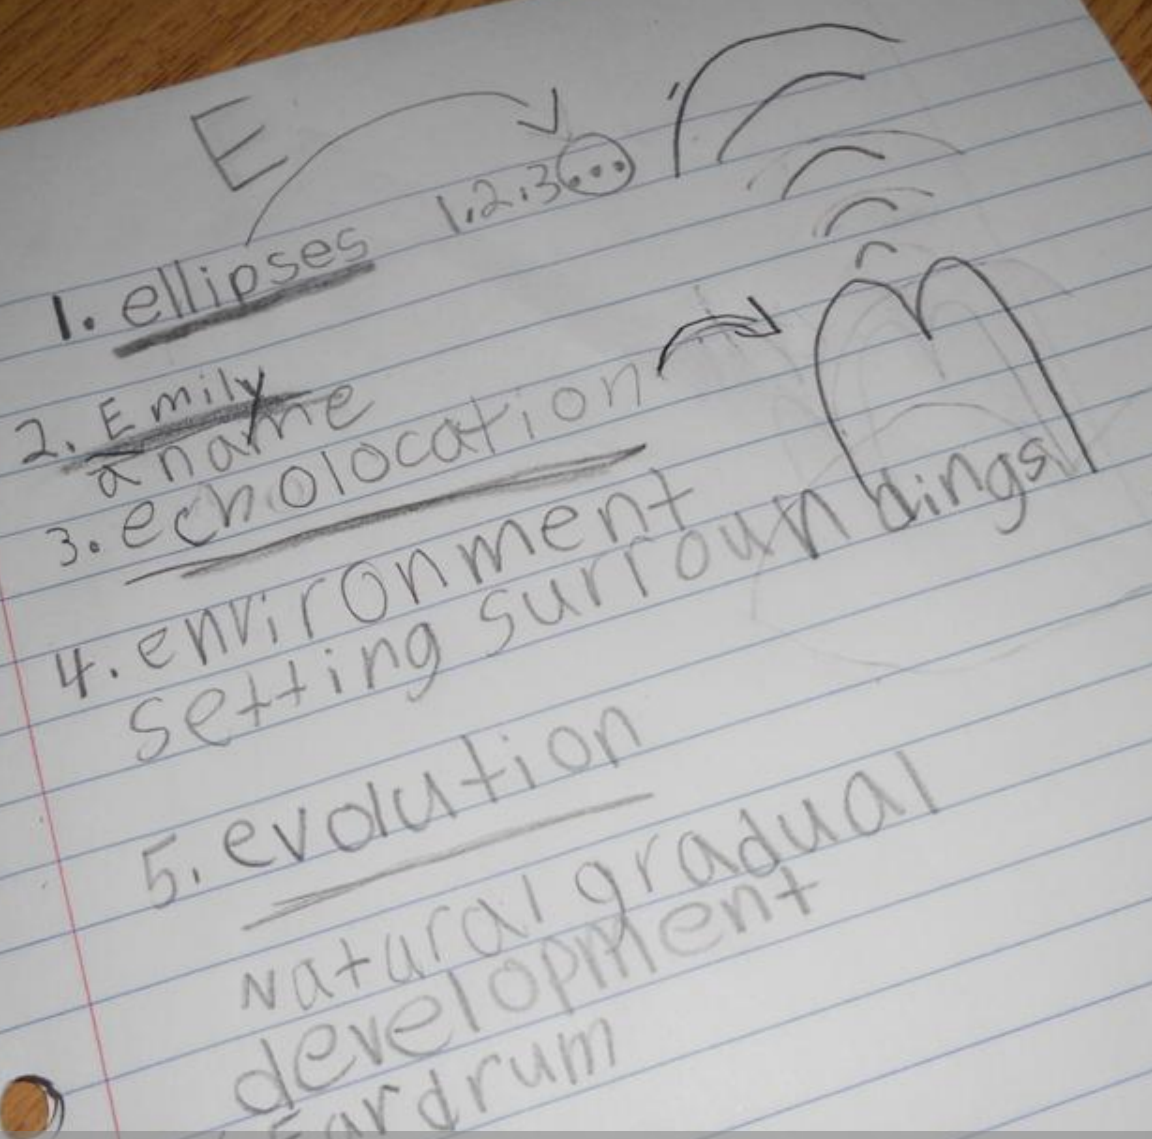 E
1,2,3...
1. ellipses
2. Emily
a name
3. echolocation
4. environment
setting surroundings
5. evolution
Natural gradual
development
Eardrum